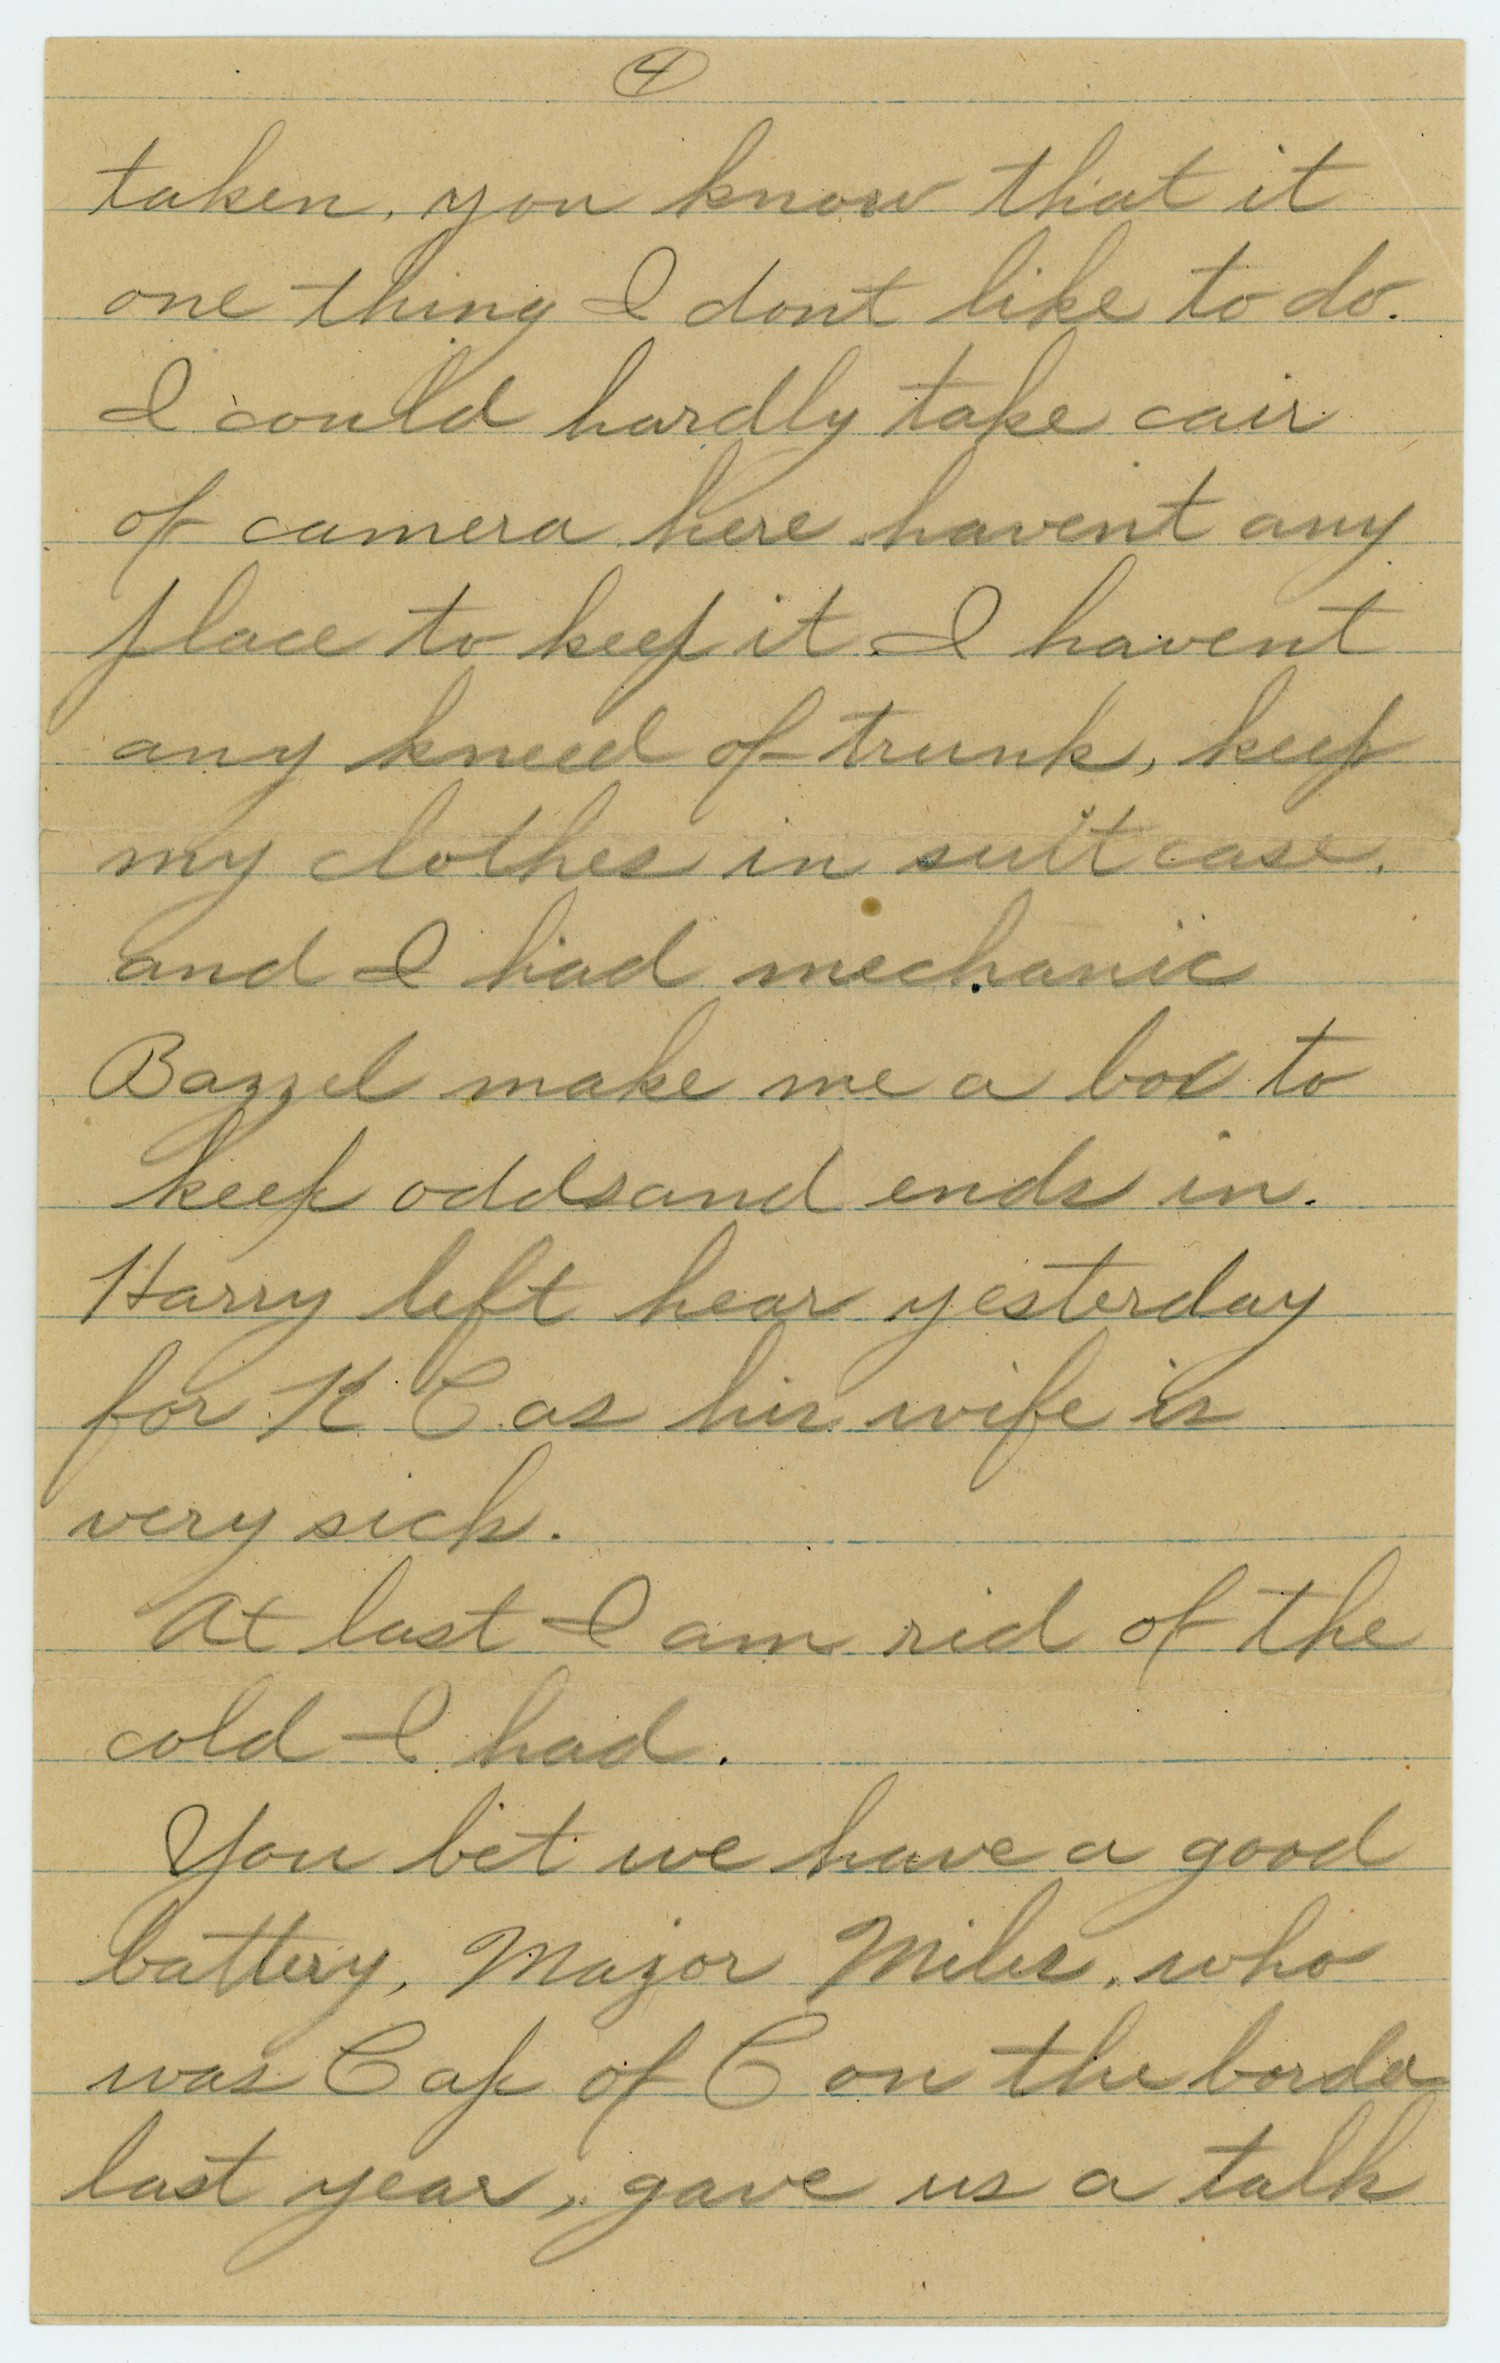 4
taken, you know that it
one thing I dont like to do.
I could hardly take cair
of camera here havent any
place to keep it. I havent
any kneed of trunk, keep
my clothes in suit case.
and I had mechanic
Bazzel make me a box to
keep odds and ends in.
Harry left hear yesterday
for K C as his wife is
very sick.
At last I am rid of the
cold I had.
You bet we have a good
battery, Major Miles, who
was Cap of C on the borda
last year, gave us a talk